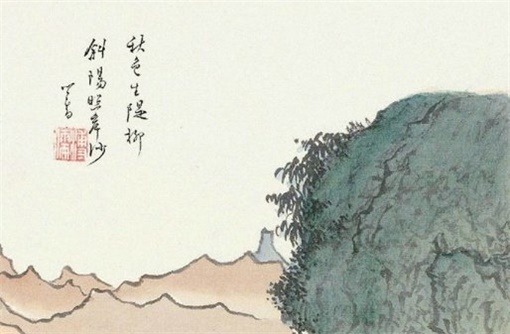 秋色生隄柳
斜陽照岸沙
溥儒